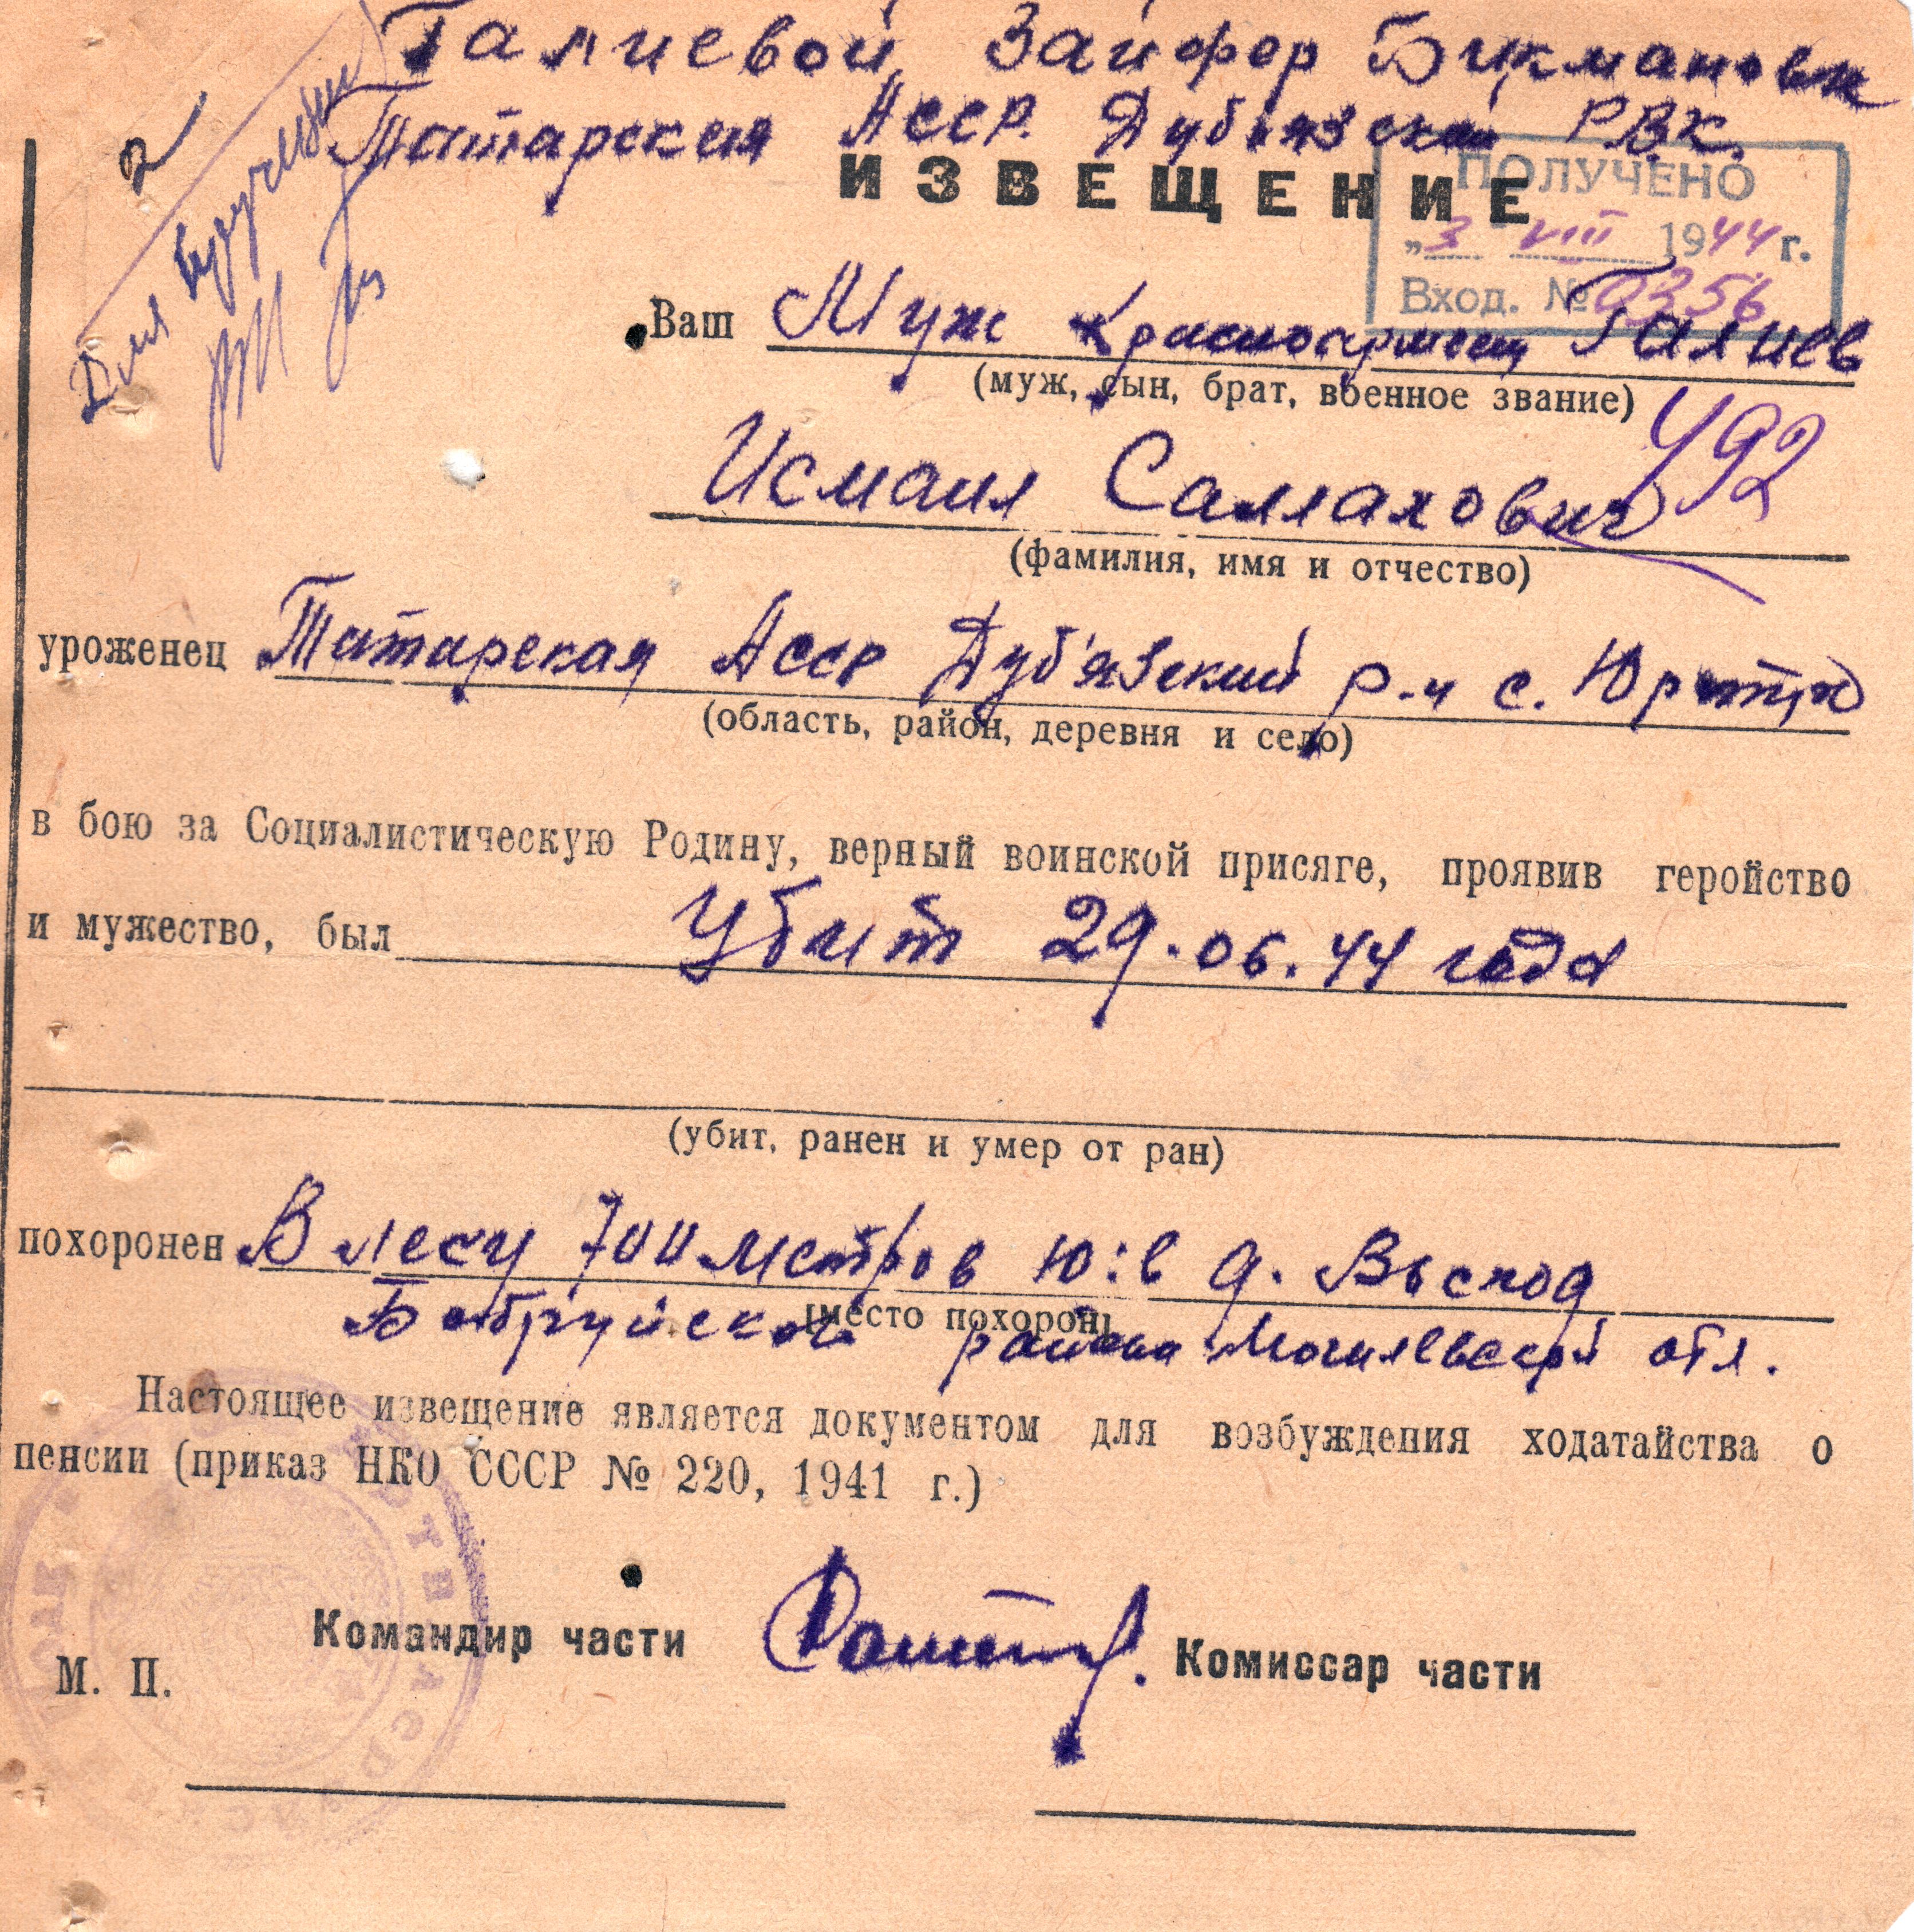 Галиевой Зайфер Бикмановн
Татарская АССР. Дубъязский РВК.
2
Для вручения
ИЗВЕЩЕНИЕ
ПОЛУЧЕНО
„3 VIII 1944 г.
Вход. № 0356
Ваш Муж красноармеец Галиев
(муж, сын, брат, военное звание)
492
Исмаил Саллахович
(фамилия, имя и отчество)
уроженец Татарская АССР Дуб'язский р-н с.
(область, район, деревня и село)
в бою за Социалистическую Родину, верный воинской присяге, проявив геройство
и мужество, был Убит 29.06.44 года
(убит, ранен и умер от ран)
похоронен В лесу 700 метров ю:в д. Выход
(место похорон)
Бобруйского района Могилевской обл.
Настоящее извещение является документом для возбуждения ходатайства о
пенсии (приказ НКО СССР № 220, 1941 г.)
Командир части Комиссар части
М. П.